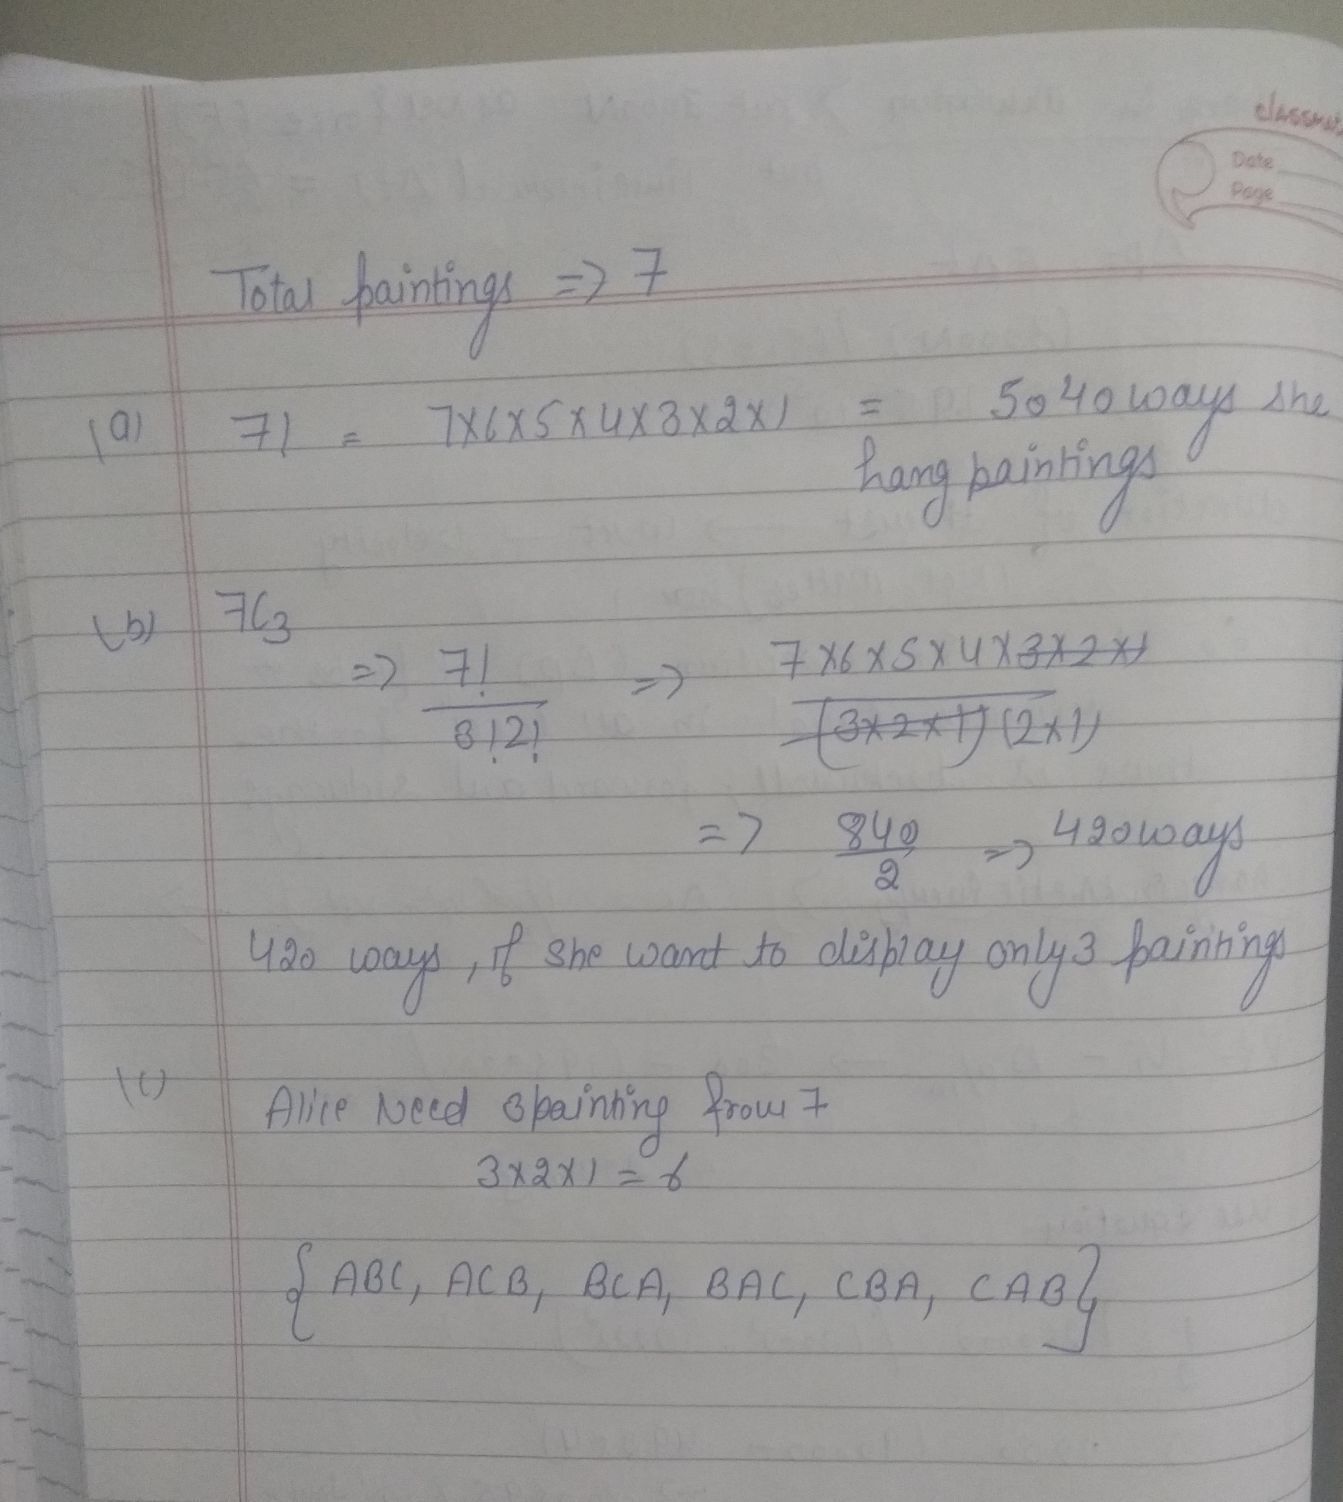 classmate
Date
Page
Total paintings => 7
(a) 7! = 7x6x5x4x3x2x1 = 5040 ways she
hang paintings
(b) 7C3
=> 7! / 3!2! => 7x6x5x4x3x2x1 / (3x2x1)(2x1)
=> 840 / 2 => 420 ways
420 ways, if she want to display only 3 paintings
(c)
Alice Need 3 painting from 7
3x2x1 = 6
{ABC, ACB, BCA, BAC, CBA, CAB}